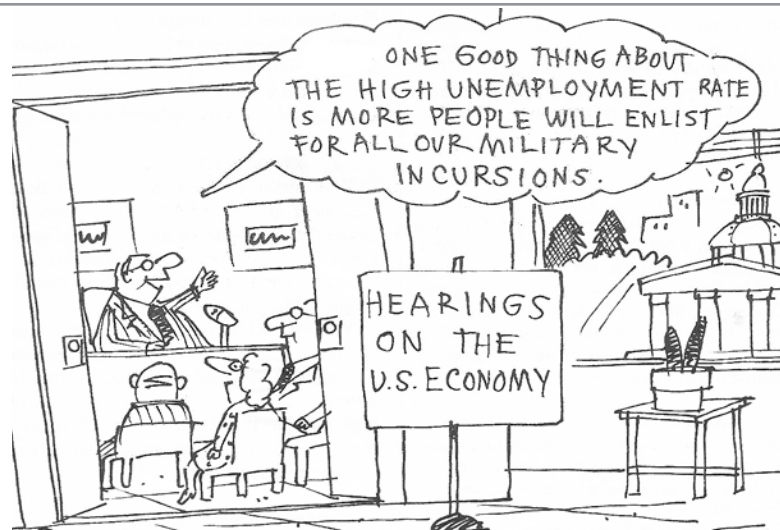 ONE GOOD THING ABOUT
THE HIGH UNEMPLOYMENT RATE
IS MORE PEOPLE WILL ENLIST
FOR ALL OUR MILITARY
INCURSIONS.
HEARINGS
ON THE
U.S. ECONOMY